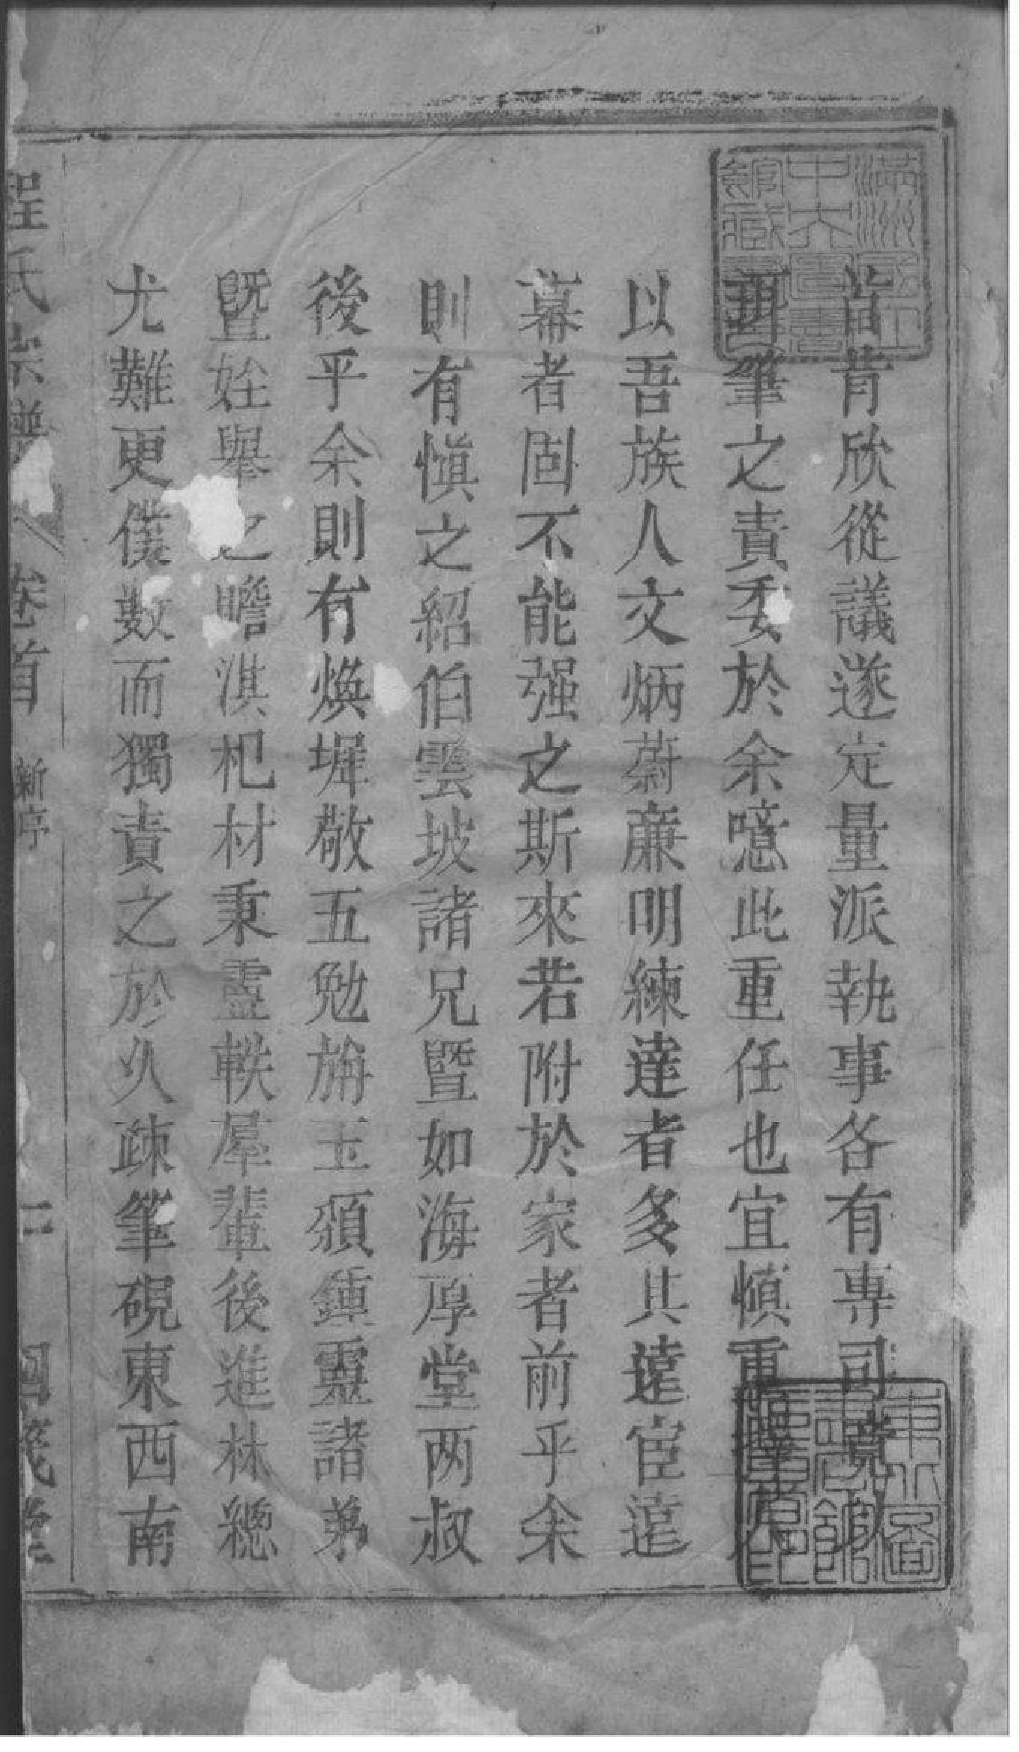 皆肯欣從議遂定量派執事各有專司竟以
珥筆之責委於余噫此重任也宜慎重擇人
以吾族人文炳蔚廉明練達者多其遠宦遠
幕者固不能强之斯來若附於家者前乎余
則有慎之紹伯雲坡諸兄暨如海厚堂两叔
後乎余則有煥墀敬五勉旃玉頫鍾靈諸弟
暨姪舉之瞻淇杞材秉靈軼羣輩後進林總
尤難更僕數而獨責之於久疎筆硯東西南
程氏宗譜 卷首 新序 二